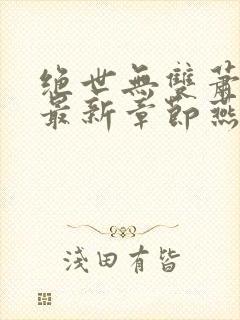 絕世無雙蕭
最新章節燕
淺田有皆